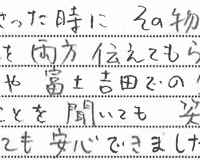 さった時に その物
も 両方 伝えてもら
や 富士吉田での
ことを 聞いても 姿
ても 安心できました